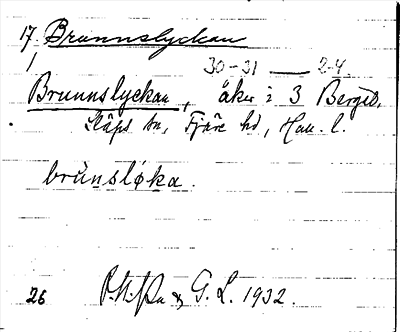 17. Brunnslyckan
30-31 — 2-4
Brunnslyckan, åker i 3 Berget,
Släps sn, Fjäre hd, Hall. l.
brùnsløka.
26 & G. L. 1932.